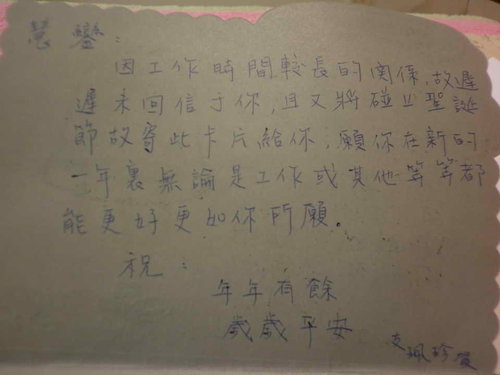 慧鑾：
因工作時間較長的關係，故遲
遲未回信于你，且又將碰上聖誕
節故寄此卡片給你，願你在新的
一年裏無論是工作或其他等等都
能更好更如你所願。
祝：
年年有餘
歲歲平安
珮珍